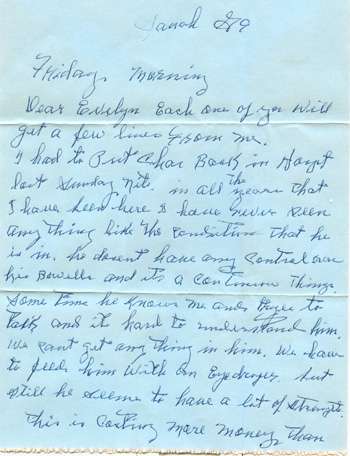 Friday, Morning
Dear Evelyn Each one of you will
get a few lines from me.
I had to Put Chas Back in Hospt
last Sunday Nite. in all the years that
I have been here I have never seen
any thing like the condition that he
is in. he doesnt have any control over
his Bowells and its a continue things.
Some time he knows me and tryes to
talk and its hard to understand him.
We cant get any thing in him. We have
to feed him With an Eyedroper. but
still he seems to have a lot of strength.
This is Costing more money than